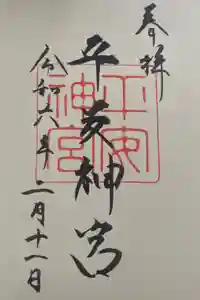 奉拝
平安神宮
令和六年
二月十一日
平安神宮